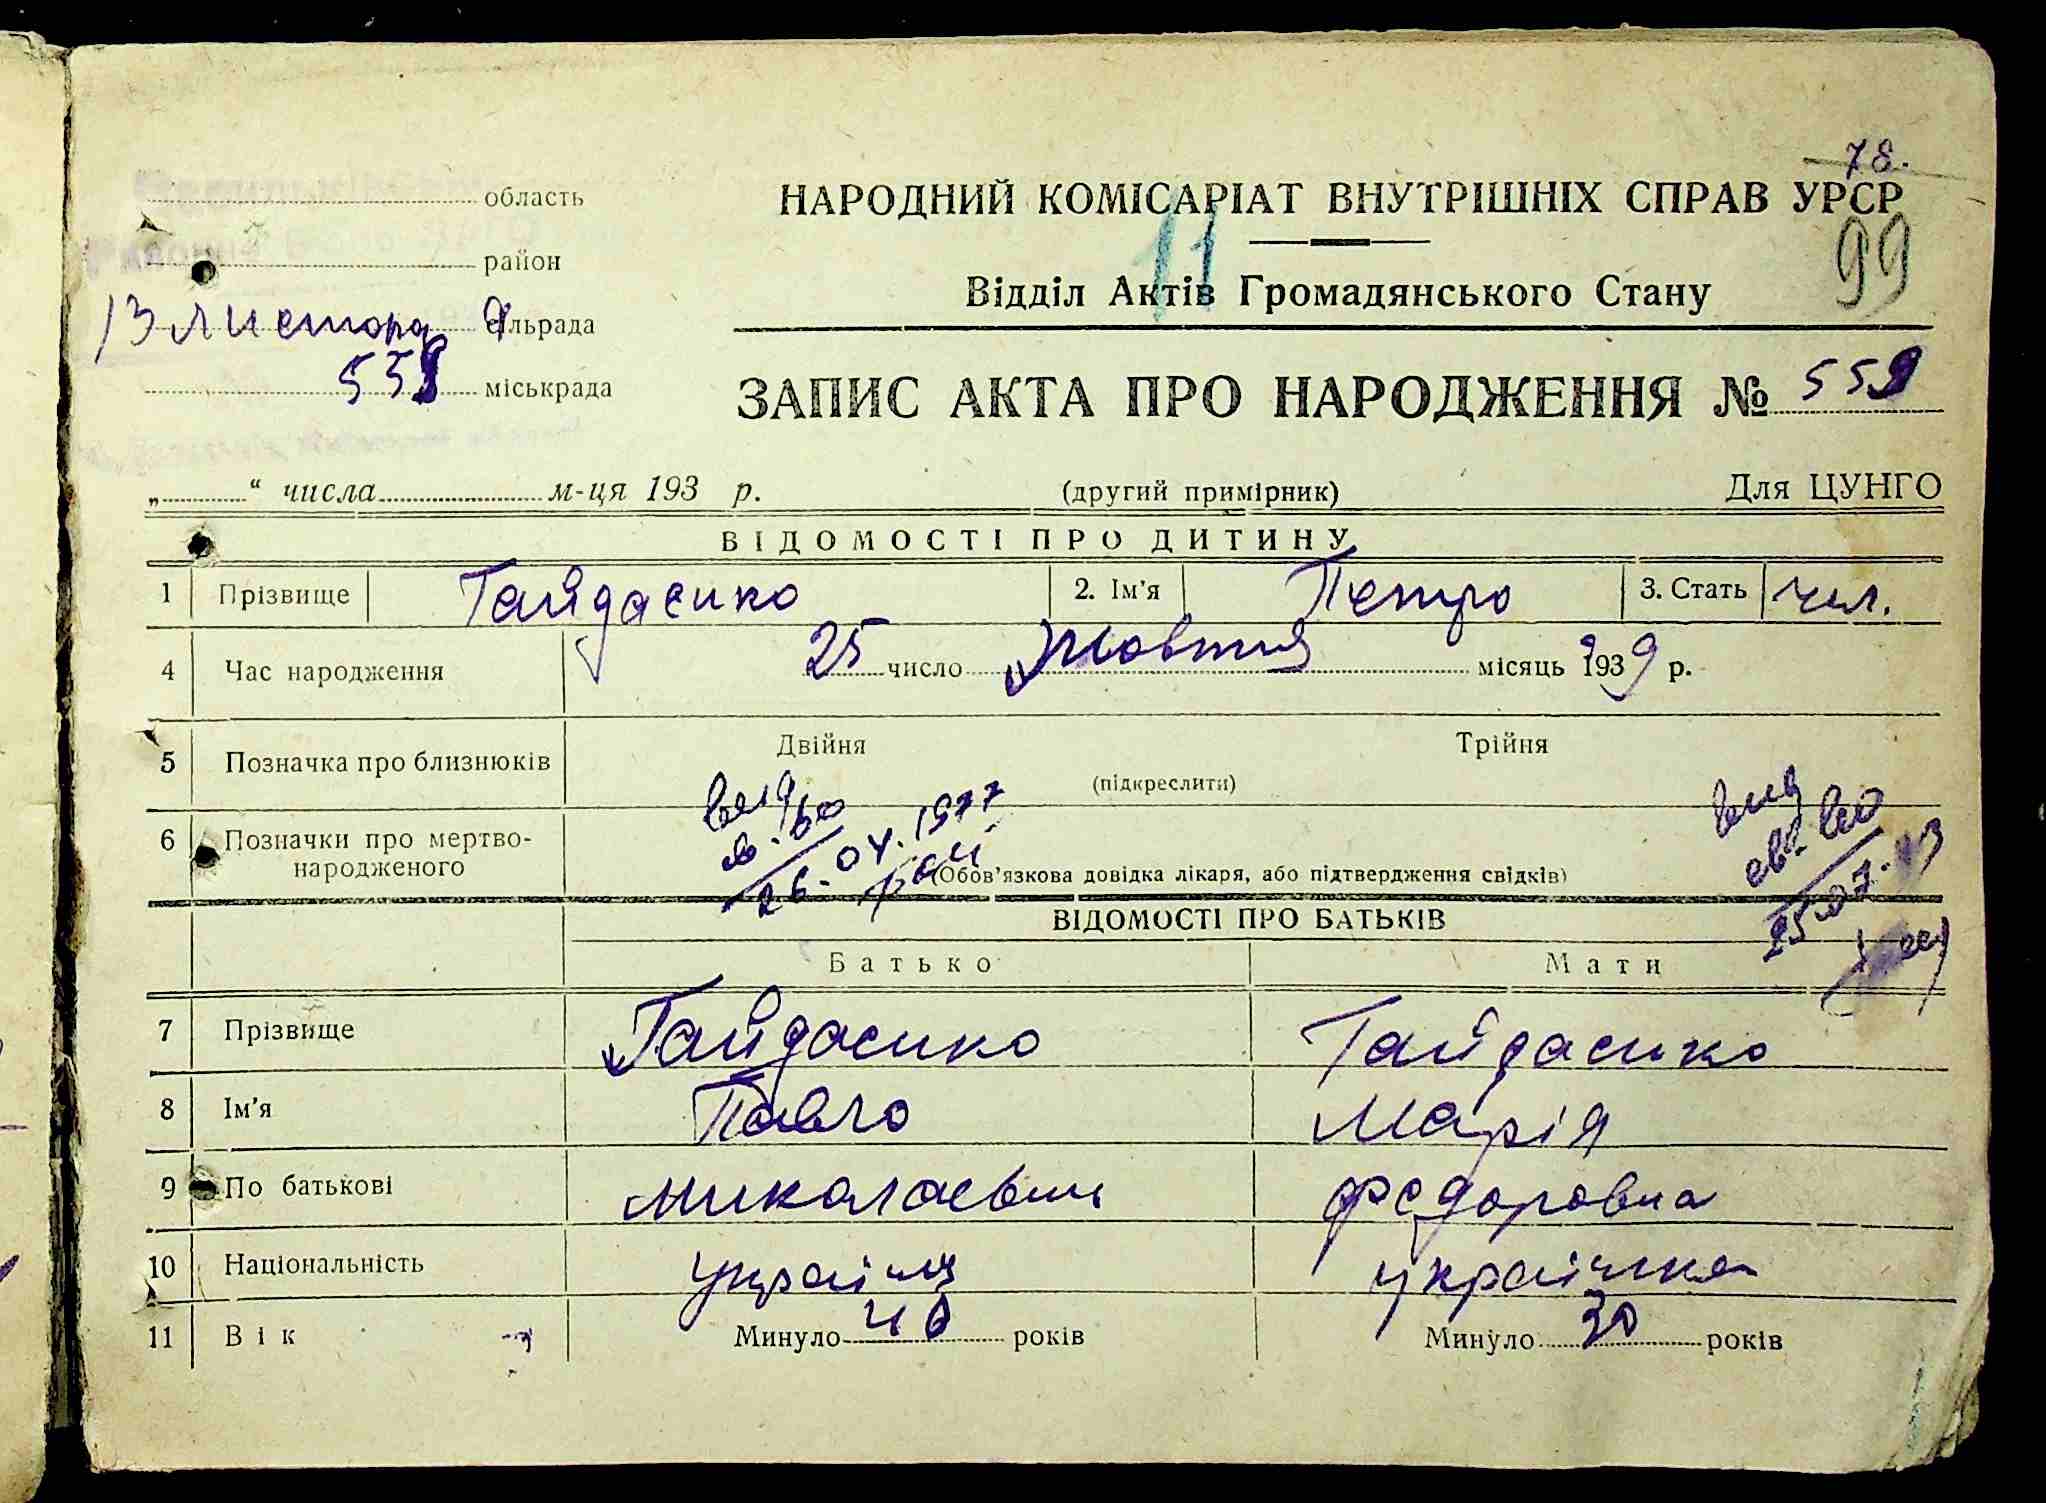 78.
область
НАРОДНИЙ КОМІСАРІАТ ВНУТРІШНІХ СПРАВ УРСР
район
11
99
Відділ Актів Громадянського Стану
13 листопад
сільрада
559 міськрада
ЗАПИС АКТА ПРО НАРОДЖЕННЯ № 559
„ “ числа м-ця 193 р.
(другий примірник)
Для ЦУНГО
ВІДОМОСТІ ПРО ДИТИНУ
1 Прізвище Гайдасенко 2. Ім'я Петро 3. Стать чол.
4 Час народження 25 число Жовтня місяць 1939 р.
5 Позначка про близнюків Двійня Трійня
(підкреслити)
6 Позначки про мертво-
народженого
(Обов'язкова довідка лікаря, або підтвердження свідків)
26.04.1977
ВІДОМОСТІ ПРО БАТЬКІВ
Батько Мати
7 Прізвище Гайдасенко Гайдасенко
8 Ім'я Павло Марія
9 По батькові Миколаєвич Федоровна
10 Національність українц українка
11 Вік Минуло 40 років Минуло 30 років